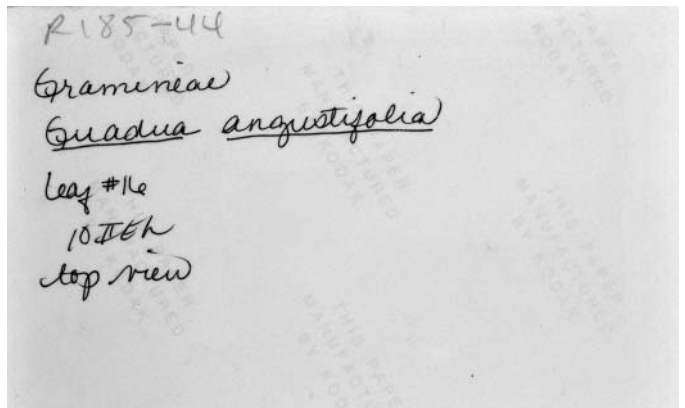 R185-44
Gramineae
Guadua angustifolia
leaf #16
top view
THIS PAPER
MANUFACTURED
BY KODAK